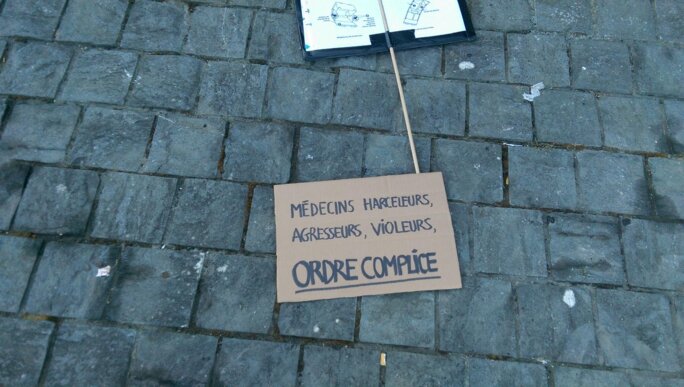 MÉDECINS HARCELEURS,
AGRESSEURS, VIOLEURS,
ORDRE COMPLICE